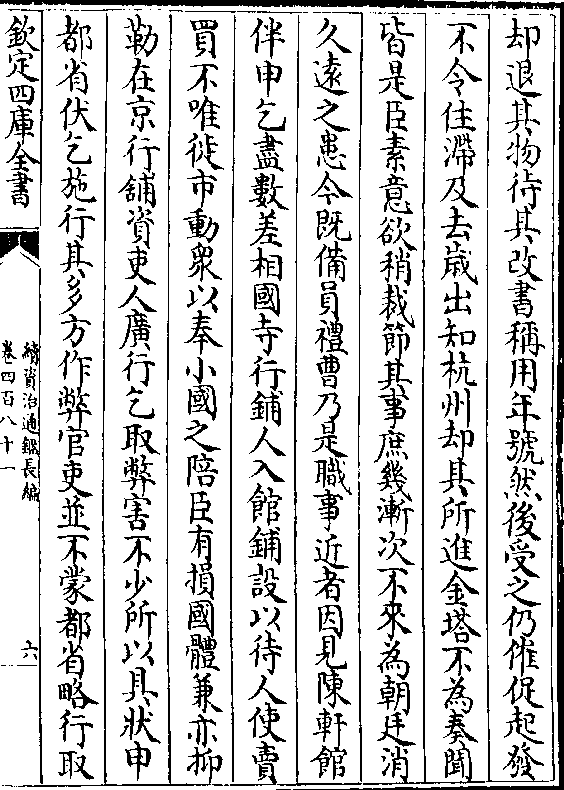 却退其物待其改書稱用年號然後受之仍催促起發
不令住滯及去歳出知杭州却其所進金塔不為奏聞
皆是臣素意欲稍裁節其事庶幾漸次不來為朝廷消
久遠之患今既備員禮曹乃是職事近者因見陳軒館
伴申乞盡數差相國寺行鋪人入館鋪設以待人使賣
買不唯徙市動衆以奉小國之陪臣有損國體兼亦抑
勒在京行鋪資吏人廣行乞取弊害不少所以具狀申
都省伏乞施行其多方作弊官吏並不蒙都省略行取
欽定四庫全書
續資治通鑑長編
卷四百八十一
六